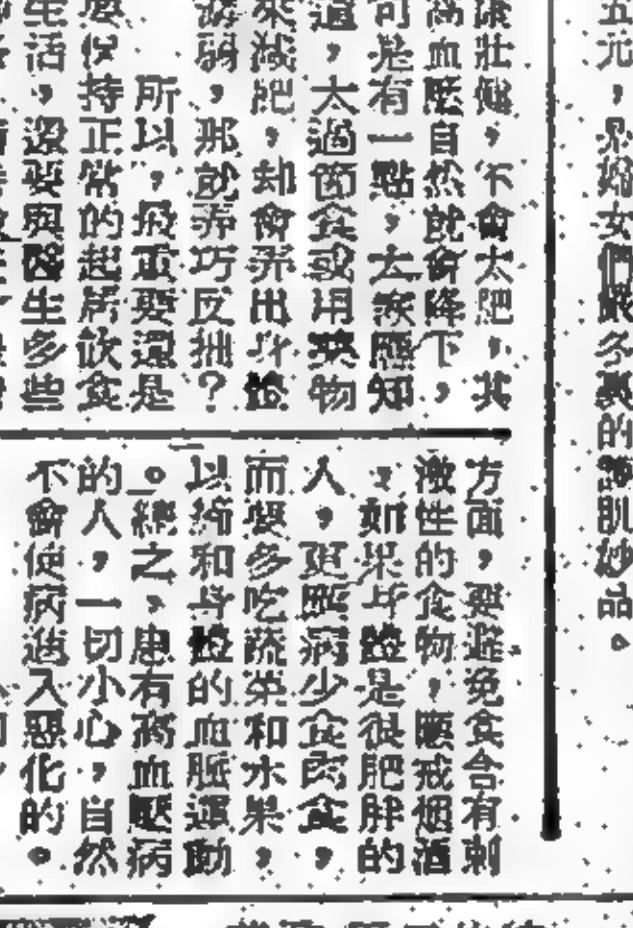 五元，界婦女們最多喜的護肌妙品。
康壯健，不會太肥，其
高血壓自然就會降下，
可是有一點，大家應知
道，太過節食或用藥物
來減肥，却會弄出身體
弱，那就弄巧反拙？
所以，最重要還是
要保持正常的起居飲食
生活，還要與醫生多些
方面，要避免食含有刺
激性的食物，應戒烟酒
，如果身體是很肥胖的
人，更應病少食肉食，
而要多吃蔬菜和水果，
以緩和身體的血脈運動
。總之，患有高血壓病
的人，一切小心，自然
不會使病進入惡化的。